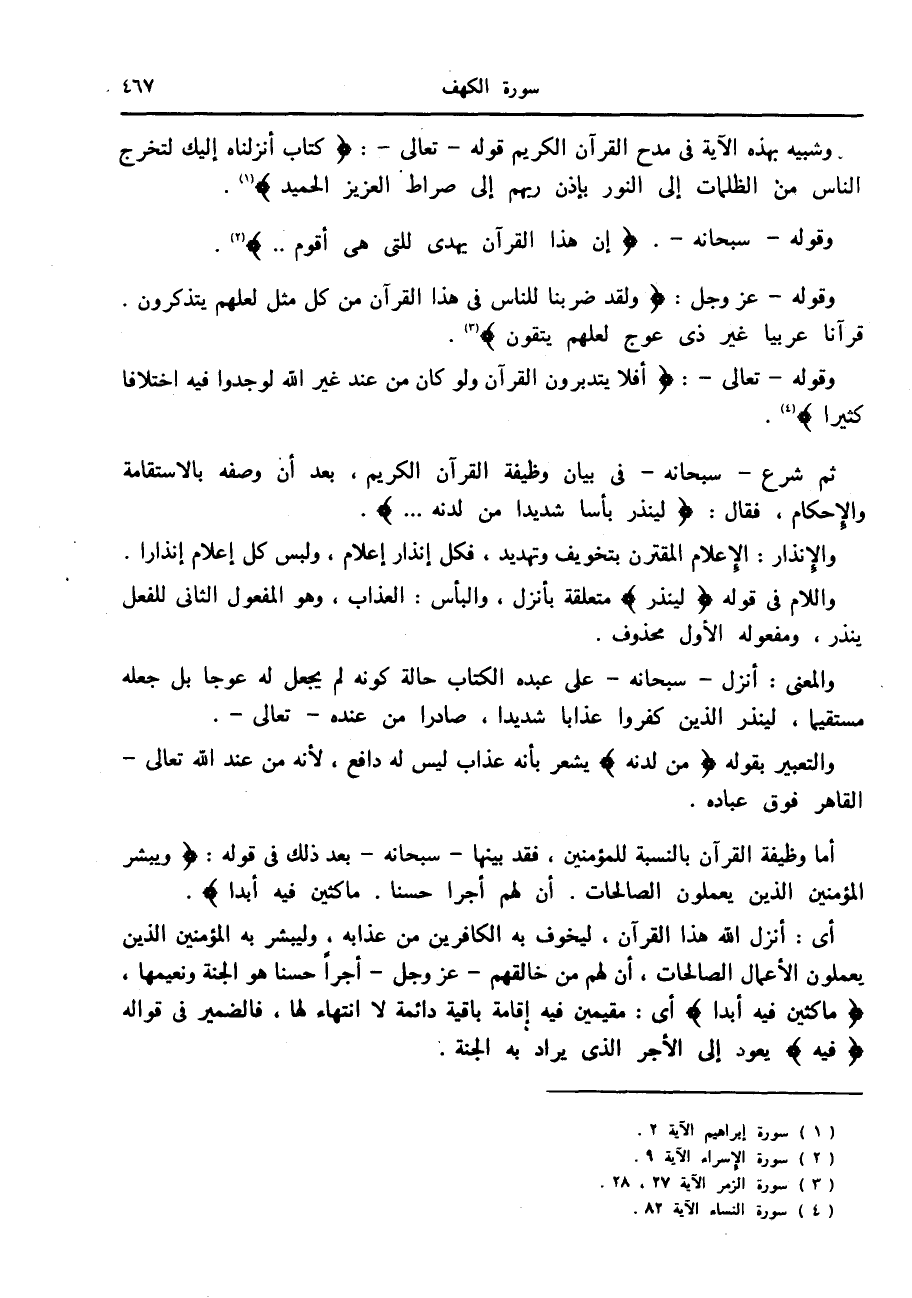 سورة الكهف ٤٦٧
وشبيه بهذه الآية فى مدح القرآن الكريم قوله - تعالى - : ﴿ كتاب أنزلناه إليك لتخرج
الناس من الظلمات إلى النور بإذن ربهم إلى صراط العزيز الحميد ﴾(١) .
وقوله - سبحانه - . ﴿ إن هذا القرآن يهدى للتى هى أقوم .. ﴾(٢) .
وقوله - عز وجل : ﴿ ولقد ضربنا للناس فى هذا القرآن من كل مثل لعلهم يتذكرون .
قرآنا عربيا غير ذى عوج لعلهم يتقون ﴾(٣) .
وقوله - تعالى - : ﴿ أفلا يتدبرون القرآن ولو كان من عند غير الله لوجدوا فيه اختلافا
كثيرا ﴾(٤) .
ثم شرع - سبحانه - فى بيان وظيفة القرآن الكريم ، بعد أن وصفه بالاستقامة
والإحكام ، فقال : ﴿ لينذر بأسا شديدا من لدنه ... ﴾ .
والإنذار : الإعلام المقترن بتخويف وتهديد ، فكل إنذار إعلام ، وليس كل إعلام إنذارا .
واللام فى قوله ﴿ لينذر ﴾ متعلقة بأنزل ، والبأس : العذاب ، وهو المفعول الثانى للفعل
ينذر ، ومفعوله الأول محذوف .
والمعنى : أنزل - سبحانه - على عبده الكتاب حالة كونه لم يجعل له عوجا بل جعله
مستقيما ، لينذر الذين كفروا عذابا شديدا ، صادرا من عنده - تعالى - .
والتعبير بقوله ﴿ من لدنه ﴾ يشعر بأنه عذاب ليس له دافع ، لأنه من عند الله تعالى -
القاهر فوق عباده .
أما وظيفة القرآن بالنسبة للمؤمنين ، فقد بينها - سبحانه - بعد ذلك فى قوله : ﴿ ويبشر
المؤمنين الذين يعملون الصالحات . أن لهم أجرا حسنا . ماكثين فيه أبدا ﴾ .
أى : أنزل الله هذا القرآن ، ليخوف به الكافرين من عذابه ، وليبشر به المؤمنين الذين
يعملون الأعمال الصالحات ، أن لهم من خالقهم - عز وجل - أجراً حسنا هو الجنة ونعيمها ،
﴿ ماكثين فيه أبدا ﴾ أى : مقيمين فيه إقامة باقية دائمة لا انتهاء لها ، فالضمير فى قواله
﴿ فيه ﴾ يعود إلى الأجر الذى يراد به الجنة .
( ١ ) سورة إبراهيم الآية ٢ .
( ٢ ) سورة الإسراء الآية ٩ .
( ٣ ) سورة الزمر الآية ٢٧ ، ٢٨ .
( ٤ ) سورة النساء الآية ٨٢ .